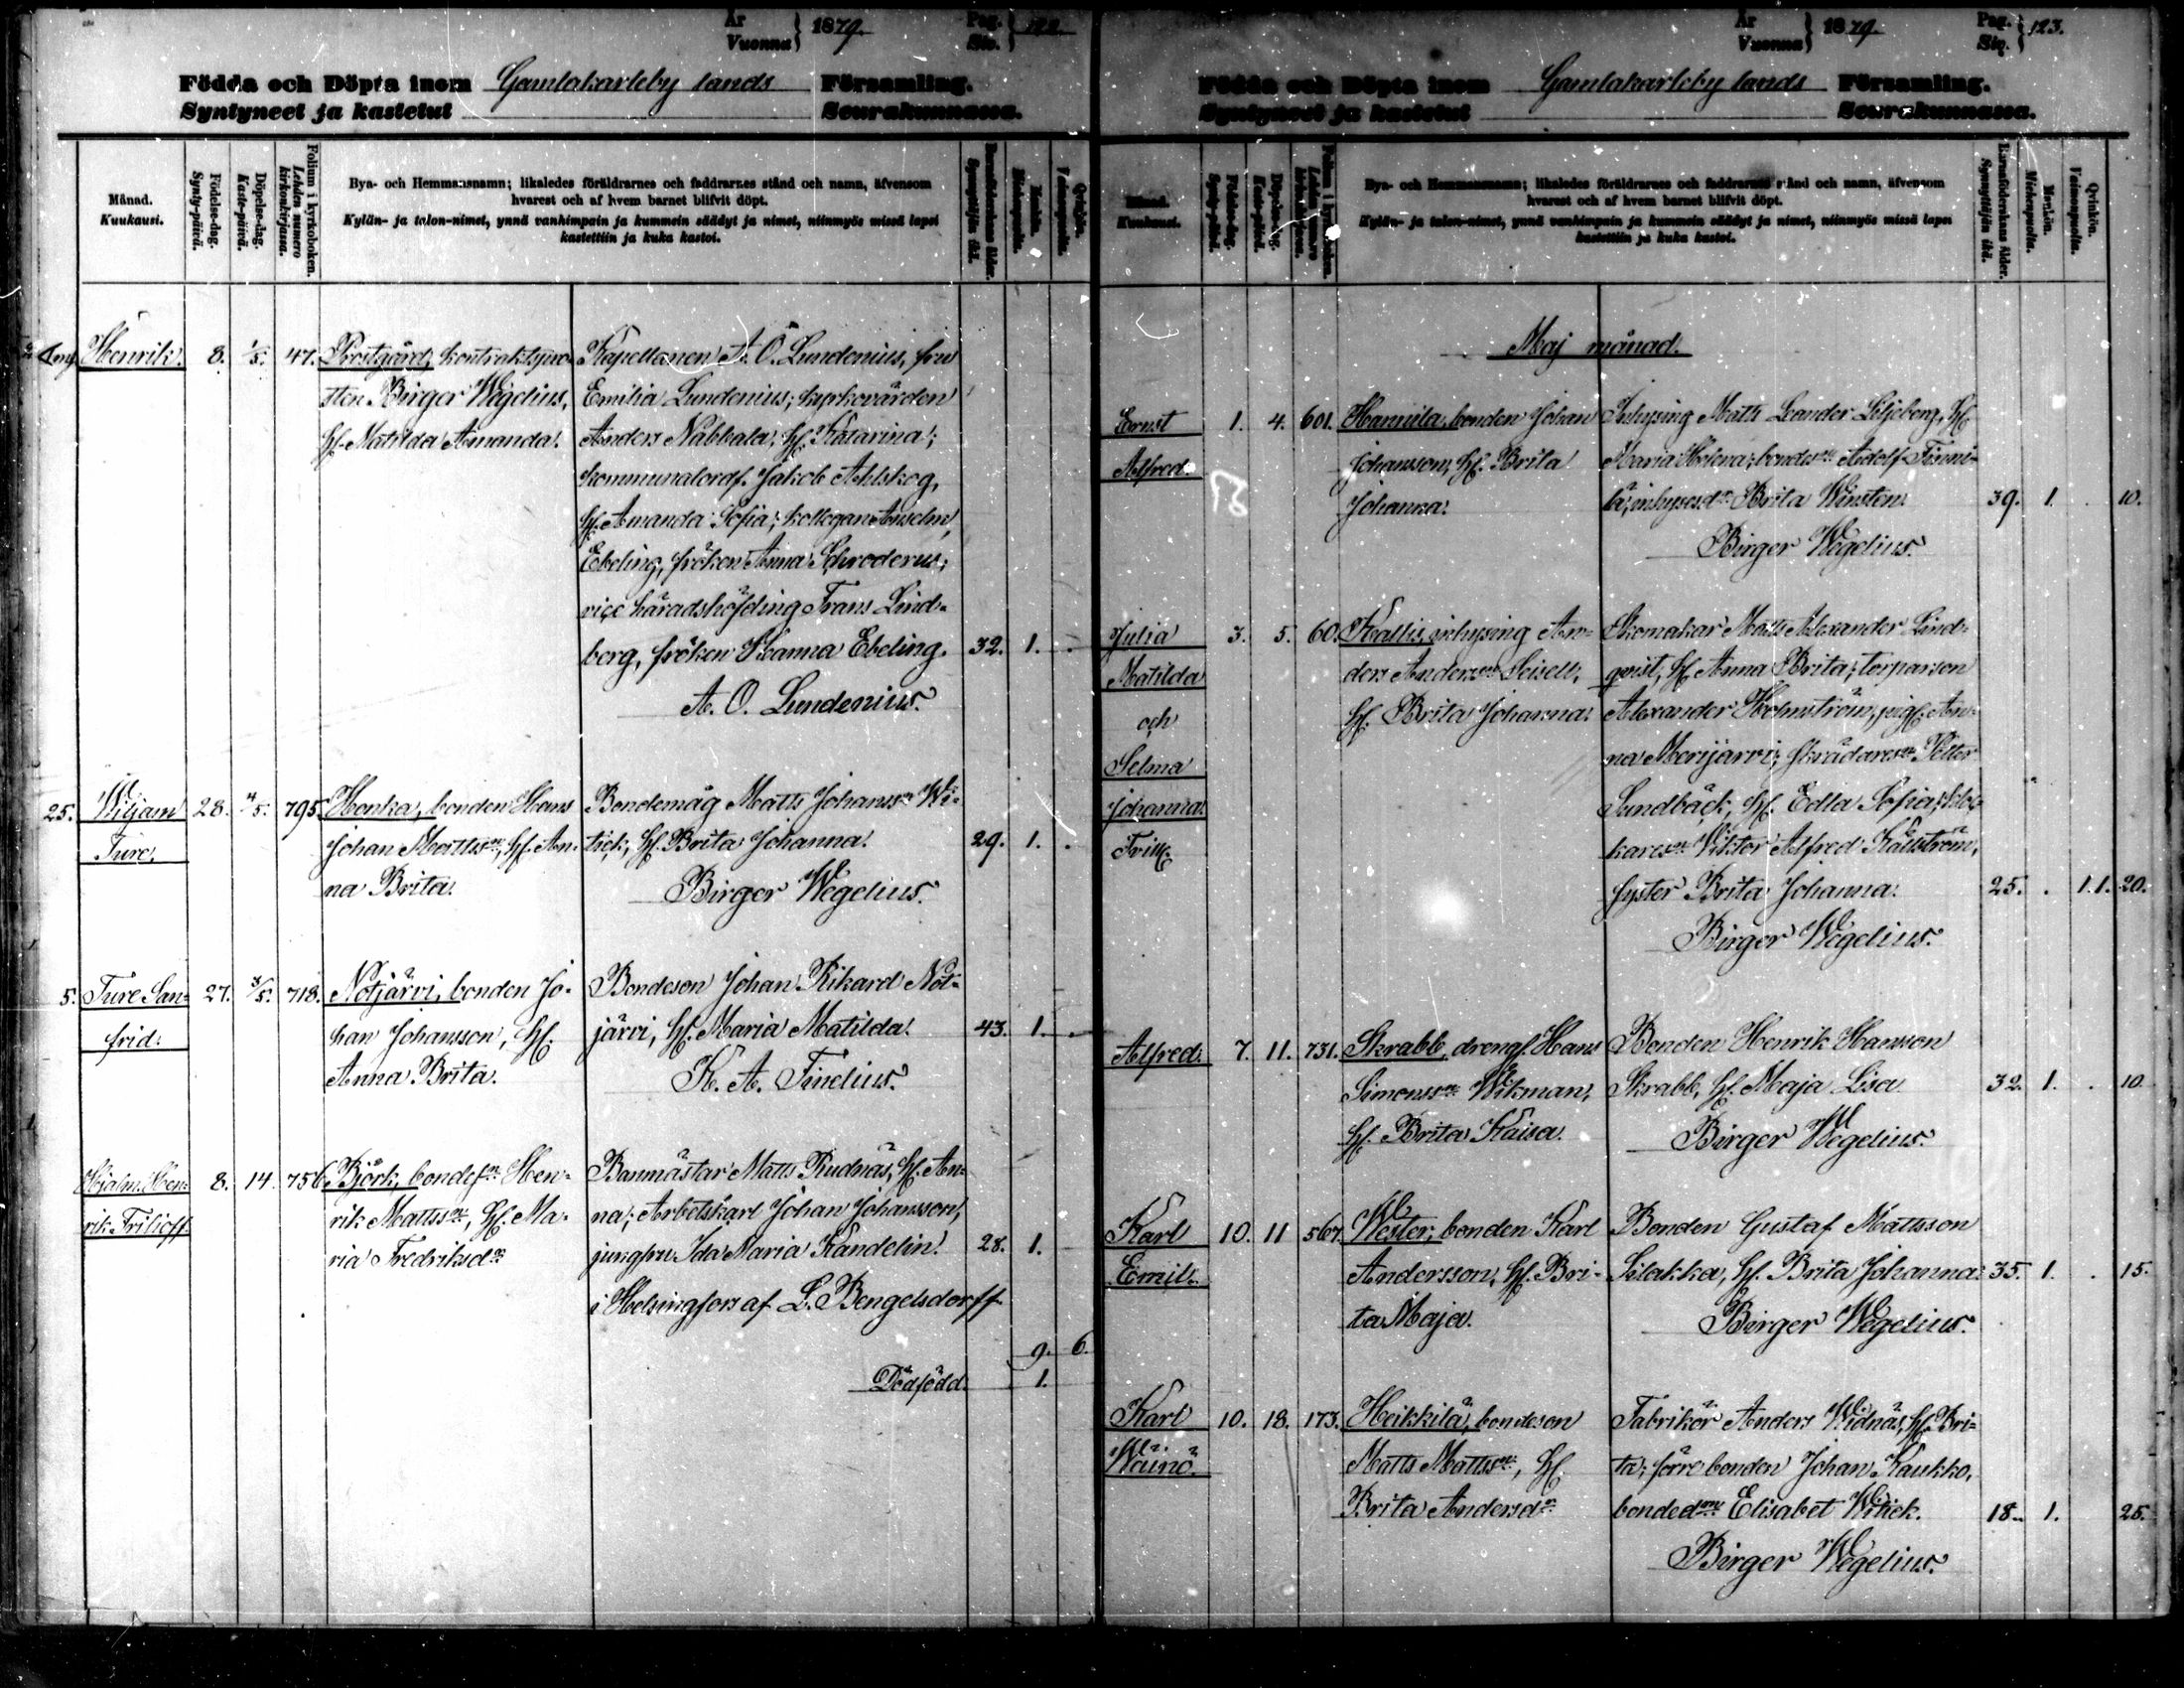 År
Vuonna } 1879.
Pag.
Siv. } 122.
Födda och Döpta inom Gamlakarleby lands Församling.
Syntyneet ja kastetut Seurakunnassa.
Månad.
Kuukausi.
Födelse-dag.
Synty-päivä.
Döpelse-dag.
Kaste-päivä.
Folium i kyrkoboken.
Lehden numero
kirkonkirjassa.
Bya- och Hemmansnamn; likaledes föräldrarnes och faddrarnes stånd och namn, äfvensom
hvarest och af hvem barnet blifvit döpt.
Kylän- ja talon-nimet, ynnä vanhimpain ja kummein säädyt ja nimet, niinmyös missä lapsi
kastettiin ja kuka kastoi.
Barnföderskans ålder.
Synnyttäjän ikä.
Mankön.
Miehenpuolta.
Qvinkön.
Vaimonpuolta.
Henrik. 8. 1/5. 47. Prostgård, kontraktspro-
sten Birger Wegelius,
hf. Matilda Amanda.
Kapellanen A. O. Lundenius, fru
Emilia Lundenius; kyrkovärden
Anders Nabbala, hf. Katarina;
kommunalordf. Jakob Ahlskog,
hf. Amanda Sofia; kollegan Anselm
Ebeling, fröken Anna Schroderus;
vice häradshöfding Frans Lind-
berg, fröken Hanna Ebeling. 32. 1.
A. O. Lundenius.
25. Wiljam 28. 4/5. 795. Honka, bonden Hans
Ture. Johan Mattsson, hf. An-
na Brita.
Bondemåg Matts Johansson Wi-
tick, hf. Brita Johanna. 29. 1.
Birger Wegelius.
5. Ture San- 27. 3/5. 718. Notjärvi, bonden Jo-
frid. han Johansson, hf.
Anna Brita.
Bondeson Johan Rikard Not-
järvi, hf. Maria Matilda. 43. 1.
K. A. Finelius.
Hjalm. Hen- 8. 14. 756 Björk, bondeson Hen-
rik Frilioff rik Mattsson, hf. Ma-
ria Fredriksdr
Banmästar Matts Rudnäs, hf. An-
na; Arbetskarl Johan Johansson,
jungfru Ida Maria Kandelin. 28. 1.
i Helsingfors af L. Bengelsdorff
9. 6.
Dödfödd. 1.
År
Vuonna } 1879.
Pag.
Siv. } 123.
Födda och Döpta inom Gamlakarleby lands Församling.
Syntyneet ja kastetut Seurakunnassa.
Månad.
Kuukausi.
Födelse-dag.
Synty-päivä.
Döpelse-dag.
Kaste-päivä.
Folium i kyrkoboken.
Lehden numero
kirkonkirjassa.
Bya- och Hemmansnamn; likaledes föräldrarnes och faddrarnes stånd och namn, äfvensom
hvarest och af hvem barnet blifvit döpt.
Kylän- ja talon-nimet, ynnä vanhimpain ja kummein säädyt ja nimet, niinmyös missä lapsi
kastettiin ja kuka kastoi.
Barnföderskans ålder.
Synnyttäjän ikä.
Mankön.
Miehenpuolta.
Qvinkön.
Vaimonpuolta.
Maj månad.
Ernst 1. 4. 601. Hamula, bonden Johan
Alfred. Johansson, hf. Brita
Johanna.
Inhysing Matts Leander Liljeberg, hf.
Maria Helena; bondeson Adolf
inhysesdr Brita Winsten. 39. 1. 10.
Birger Wegelius.
Julia 3. 5. 60. Kallis, inhysing An-
Matilda ders Andersson
och hf. Brita Johanna.
Selma
Johanna.
Skomakar Matts Alexander Lind-
qvist, hf. Anna Brita; torparson
Alexander Holmström, pig. An-
na Merijärvi; skrädareson Petter
Sundbäck, hf. Edla Sofia;
Wiktor Alfred Källström,
syster Brita Johanna. 25. 1.1. 20.
Birger Wegelius.
Alfred. 7. 11. 731. Skrabb, drengf. Hans
Simonsson Wikman,
hf. Brita Kaisa.
Bonden Henrik Hansson
Skrabb, hf. Maja Lisa 32. 1. 10
Birger Wegelius.
Karl 10. 11 567. Wester, bonden Karl
Emil. Andersson, hf. Bri-
ta Maja.
Bonden Gustaf Mattsson
Silakka, hf. Brita Johanna. 35. 1. 15.
Birger Wegelius.
Karl 10. 18. 173. Heikkilä, bondeson
Wäinö. Matts Mattsson, hf.
Brita Andersdr
Fabrikör Anders Widnäs, hf. Bri-
ta; förre bonden Johan Kaukko,
bondedr Elisabet Witick. 18. 1. 25.
Birger Wegelius.